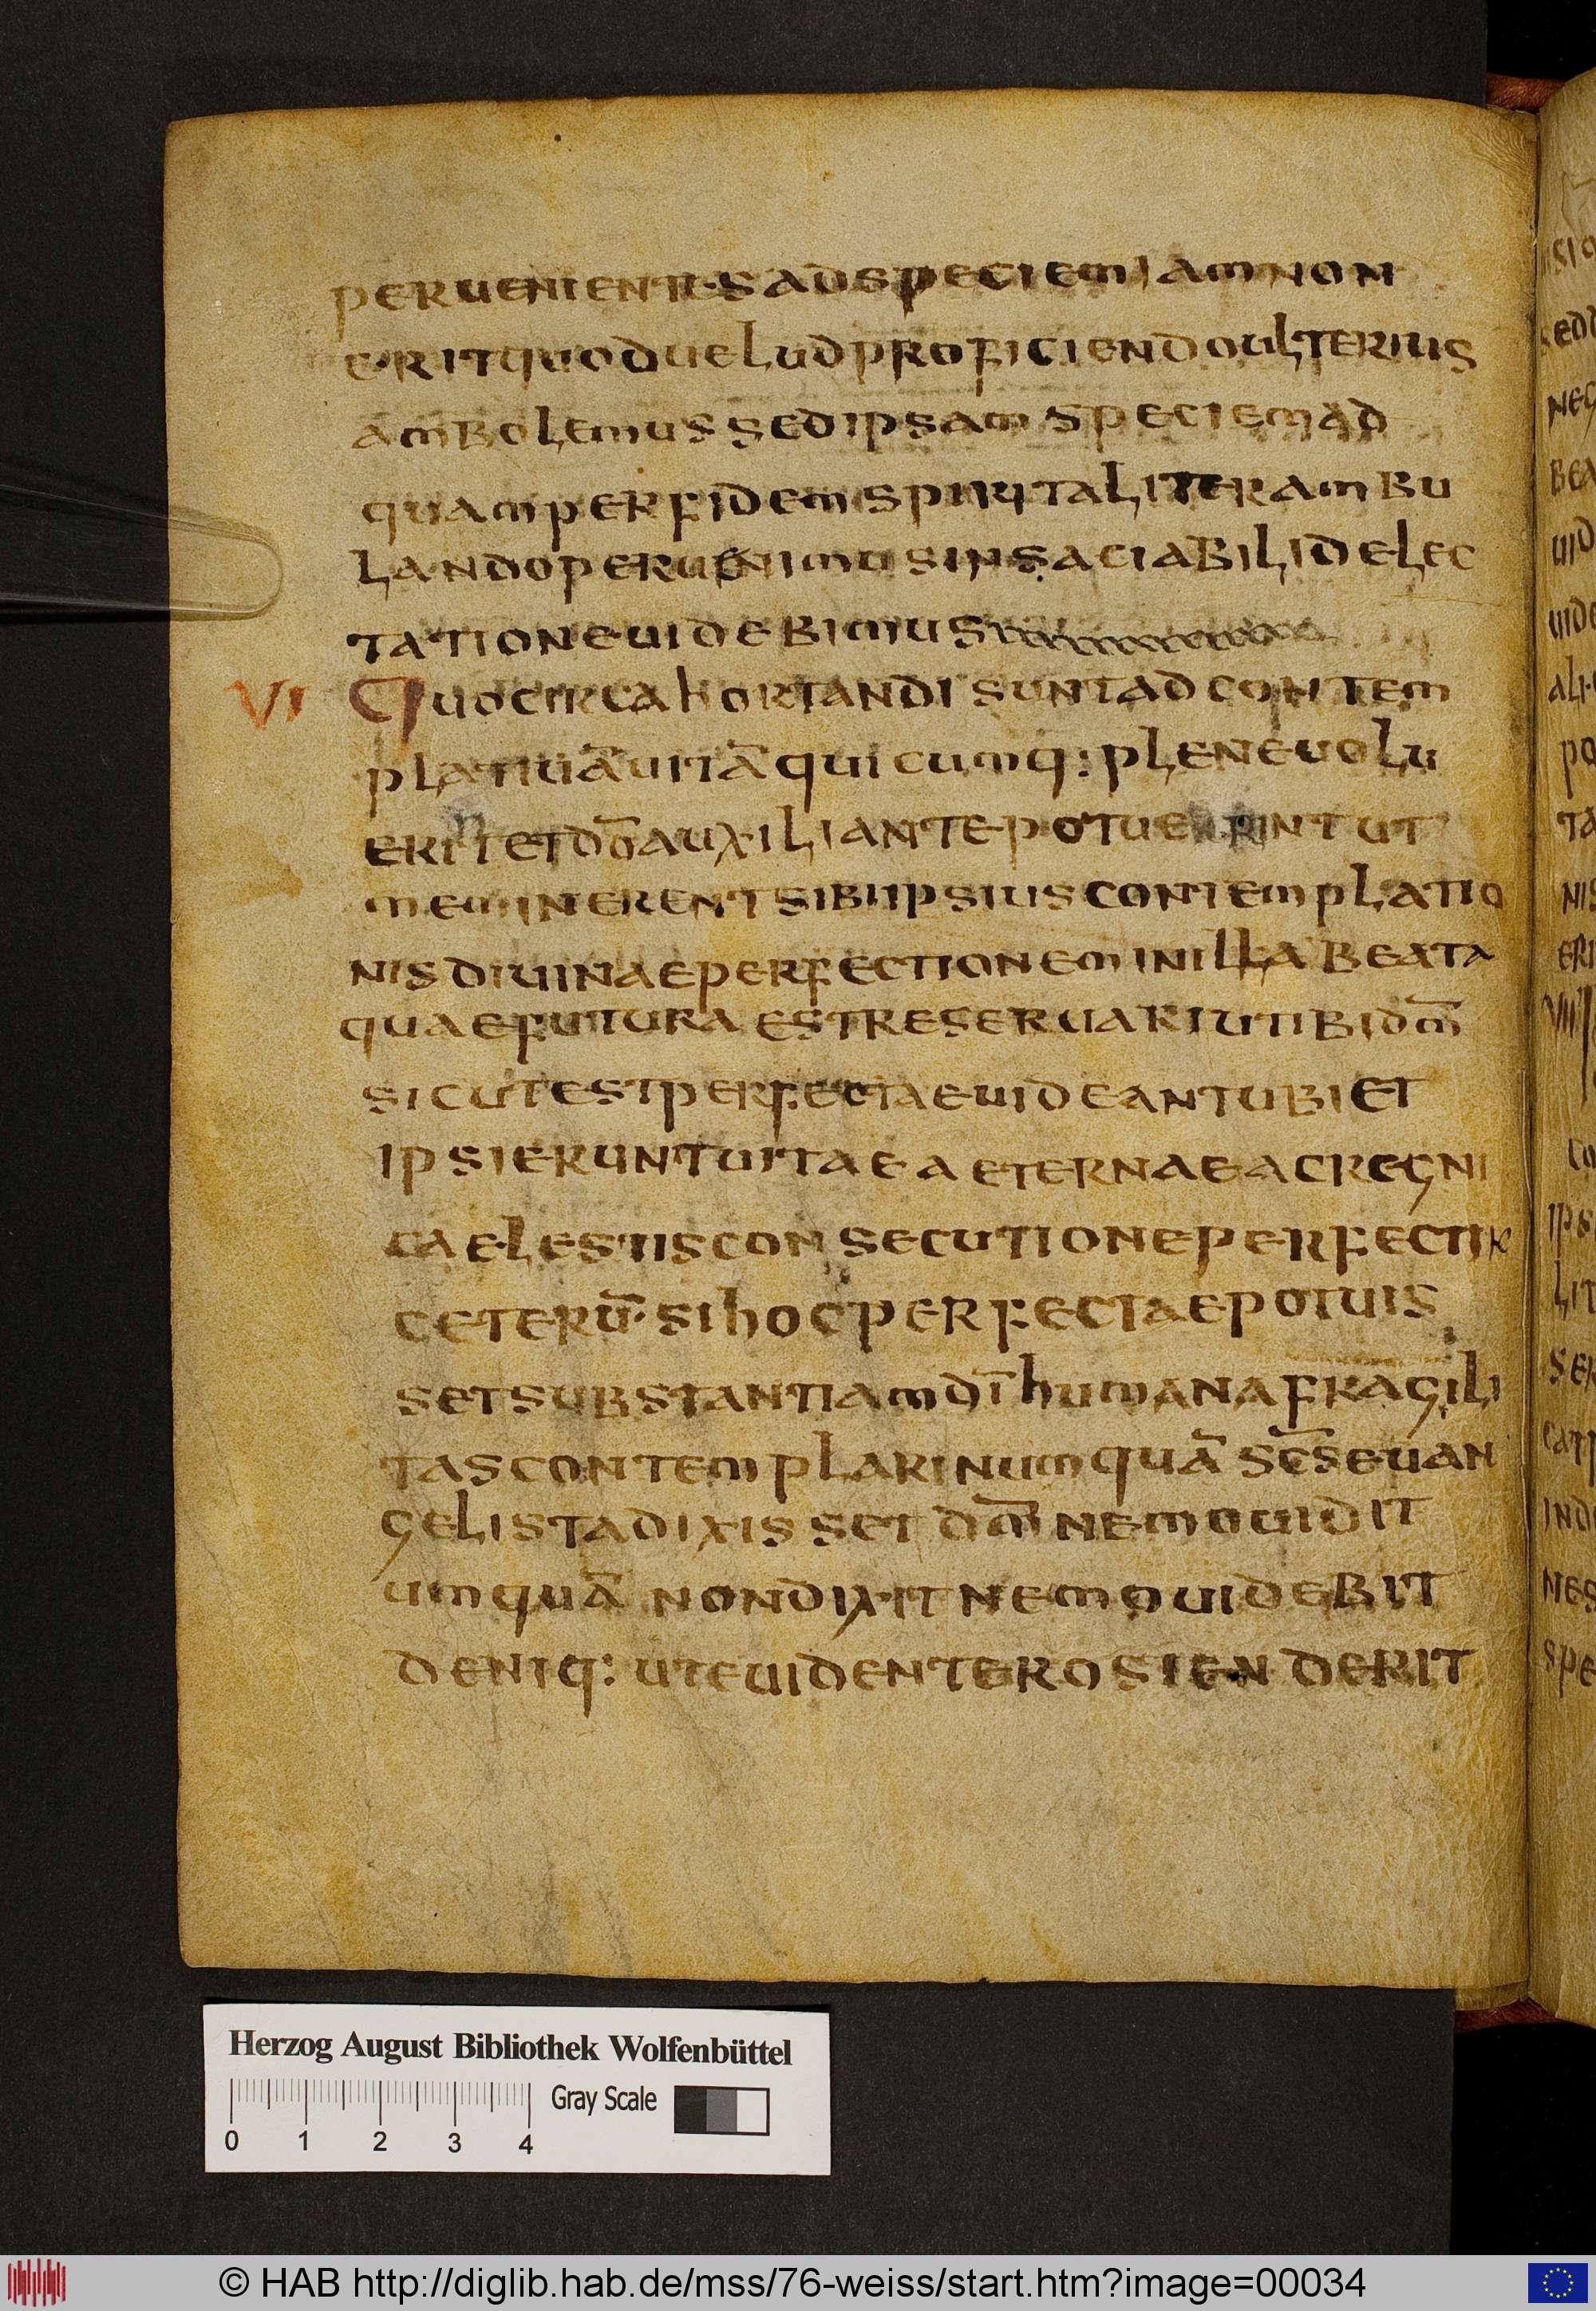 PERUENIENTES AD SPECIEM IAM NON
ERIT QUOD UELUD PROFICIENDO ULTERIUS
AMBOLEMUS SED IPSAM SPECIEM AD
QUAM PER FIDEM SPIRITALITER AMBU
LANDO PERUENIMUS INSACIABILI DELEC
TATIONE UIDEBIMUS
VI QUOCIRCA HORTANDI SUNT AD CONTEM
PLATIUĀ UITĀ QUICUMQ: PLENE UOLU
ERINT ET DŌ AUXILIANTE POTUERINT UT
MEMINERENT SIBI IPSIUS CONTEMPLATIO
NIS DIUINAE PERFECTIONEM IN ILLA BEATA
QUAE FUTURA EST RESERUARI UT IBI DM̄
SICUT EST PERFECTAE UIDEANT UBI ET
IPSI ERUNT UITAE AETERNAE AC REGNI
CAELESTIS CONSECUTIONE PERFECTI
CETERŪ· SI HOC PERFECTAE POTUIS
SET SUBSTANTIAM DĪ HUMANA FRAGILI
TAS CONTEMPLARI NUMQUĀ SC̄S EUAN
GELISTA DIXISSET DM̄ NEMO UIDIT
UMQUĀ NON DIXIT NEMO UIDEBIT
DENIQ: UT EUIDENTER OSTENDERIT
Herzog August Bibliothek Wolfenbüttel
Gray Scale
0 1 2 3 4
© HAB http://diglib.hab.de/mss/76-weiss/start.htm?image=00034